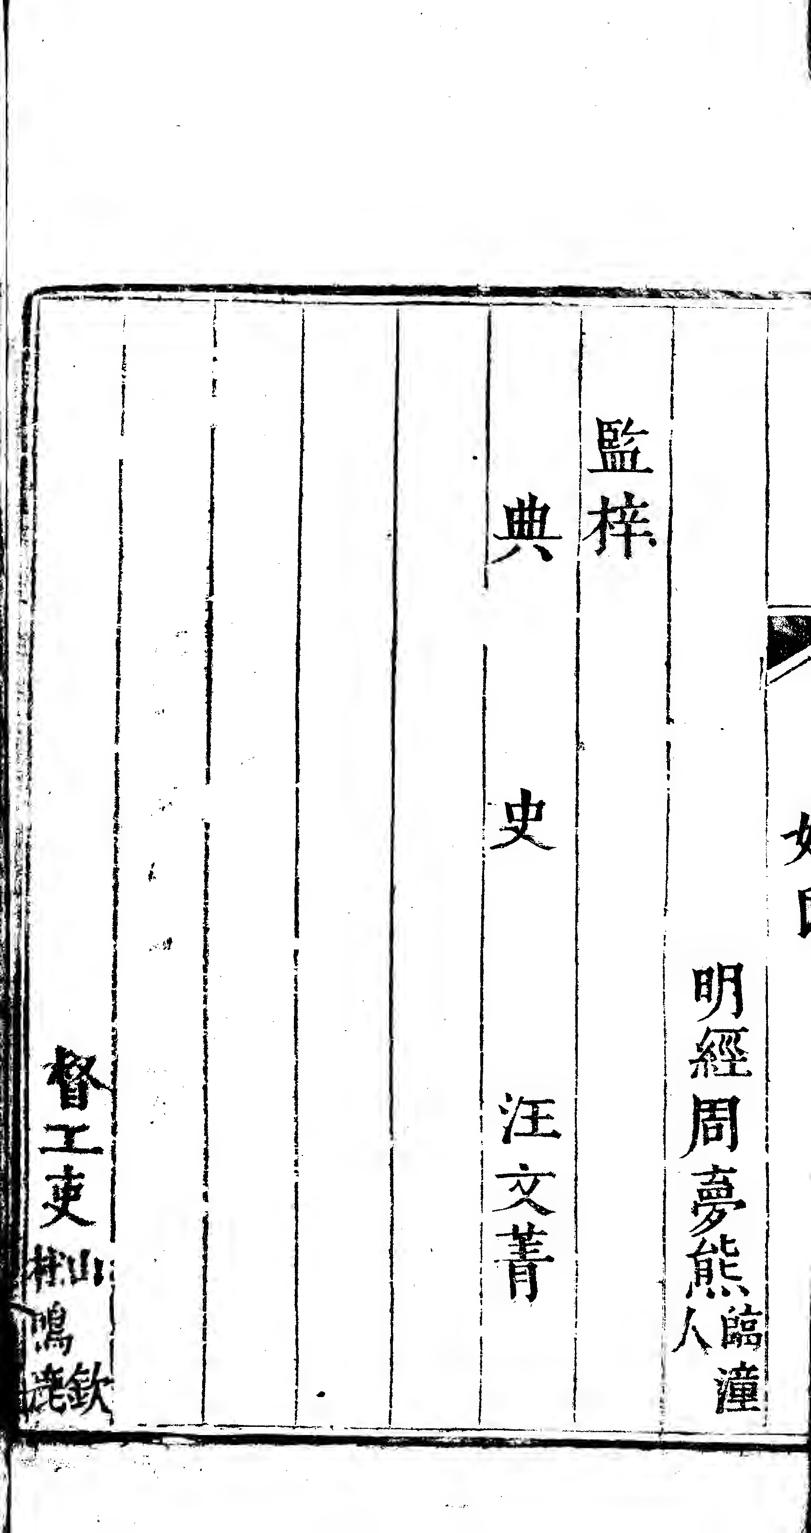 明經周夢熊臨潼人
監梓
典史汪文菁
督工吏
山欽
鳴鹿